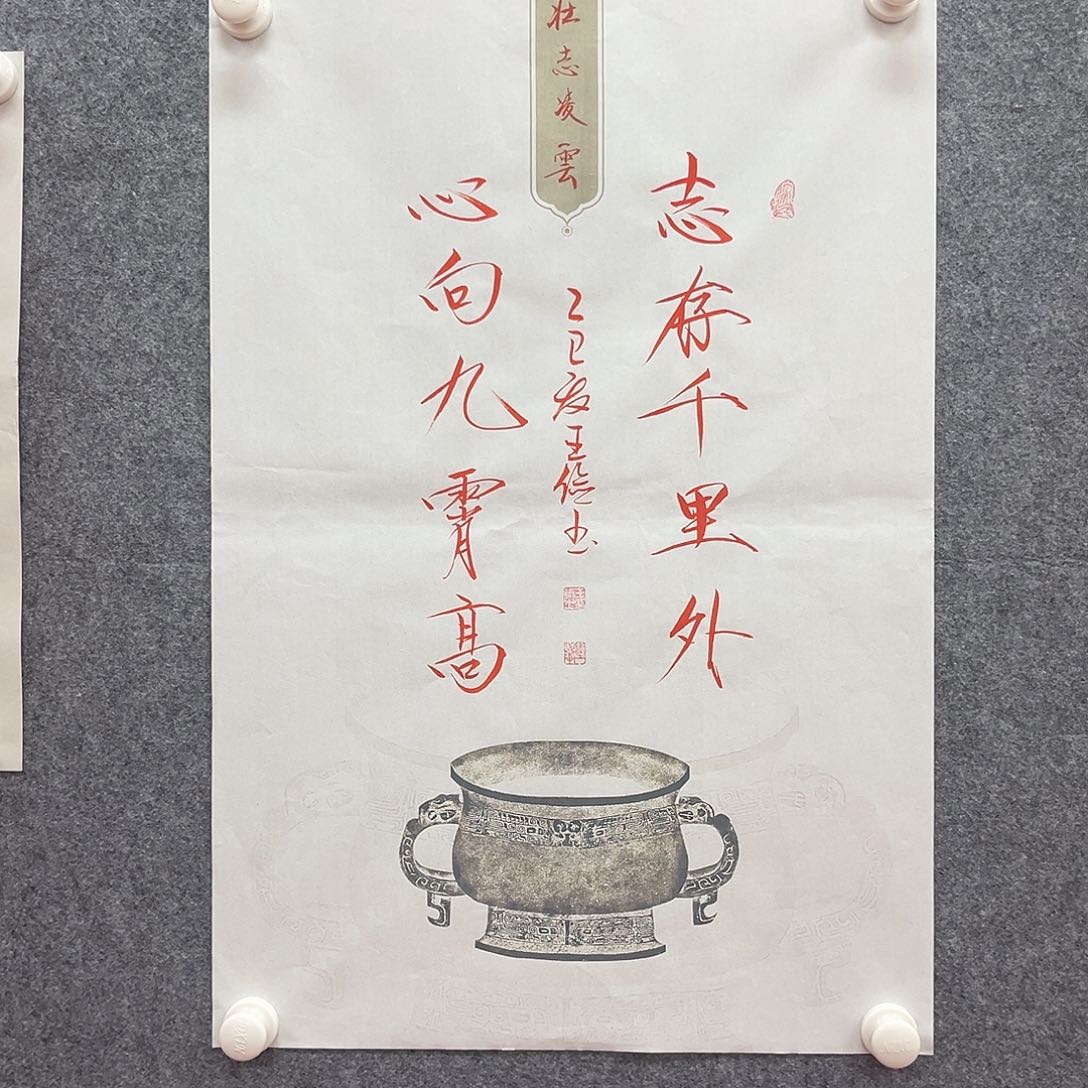 壮志凌雲
志存千里外
心向九霄高
乙巳夏王俭书